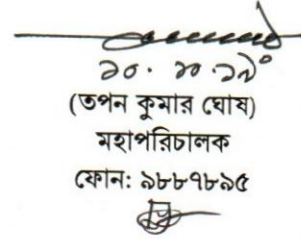 ১০.১০.১৯
(তপন কুমার ঘোষ)
মহাপরিচালক
ফোন: ৯৮৮৭৮৯৫